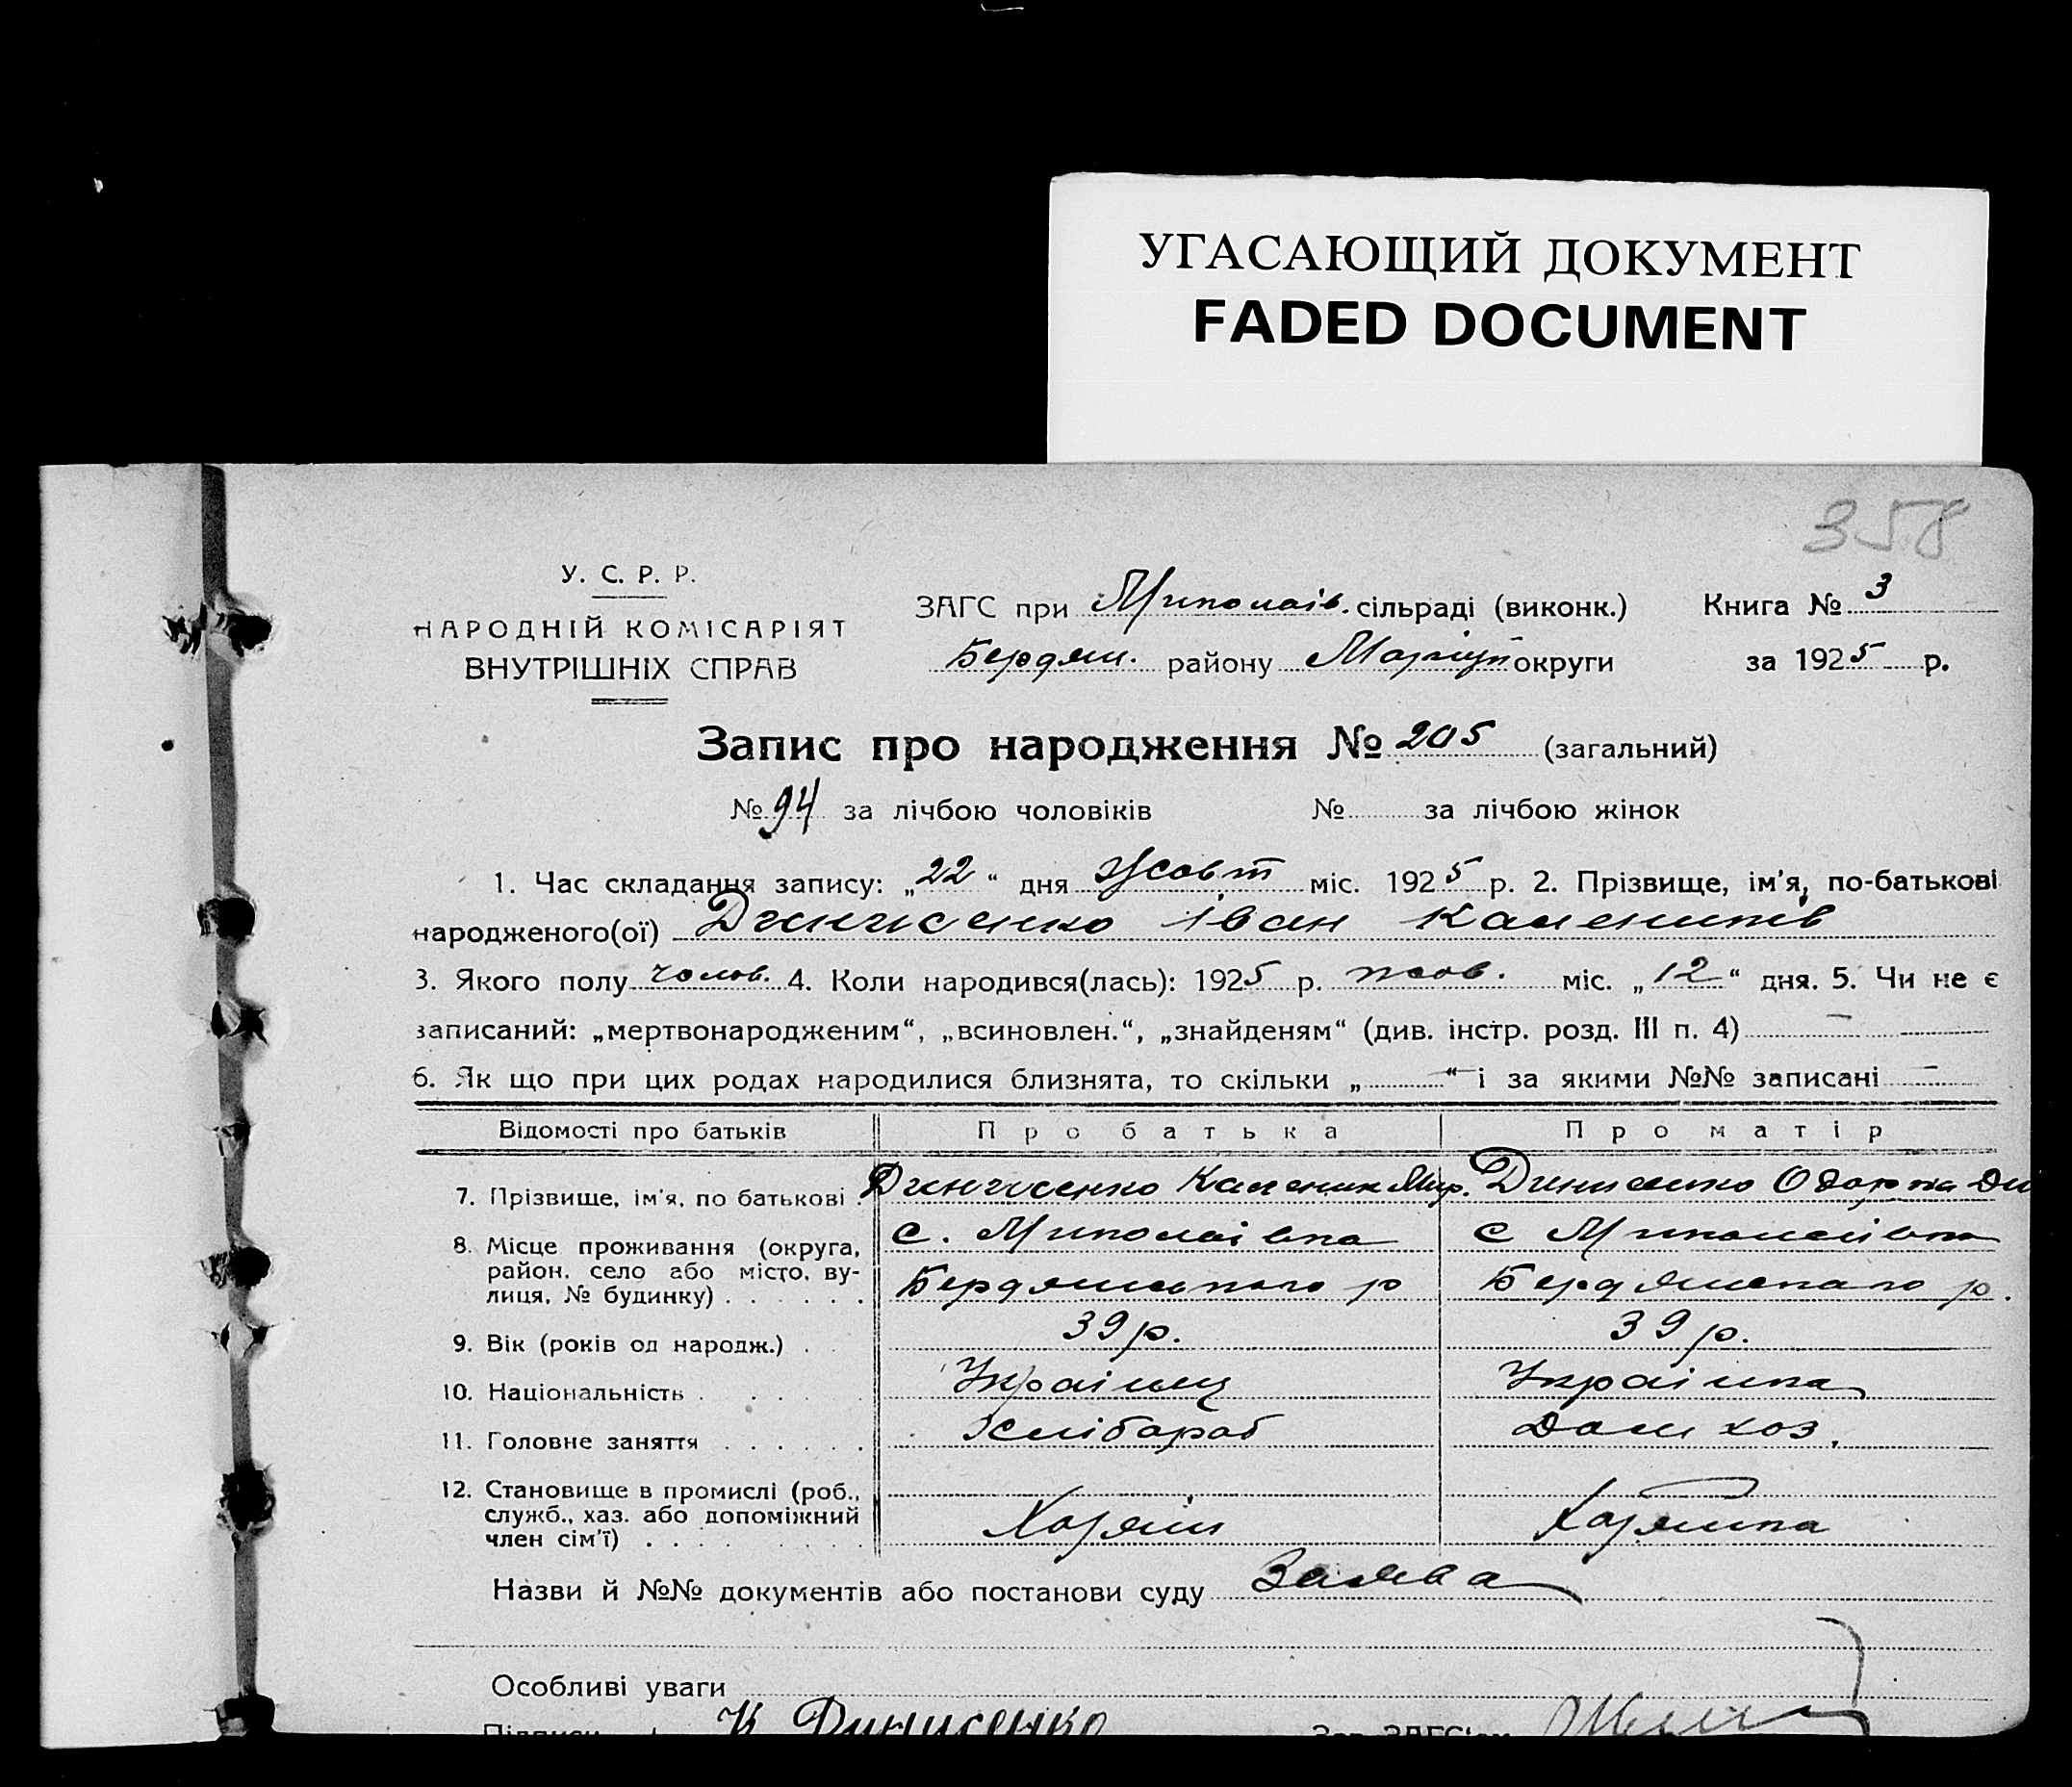 УГАСАЮЩИЙ ДОКУМЕНТ
FADED DOCUMENT
358
У. С. Р. Р.
НАРОДНІЙ КОМІСАРІЯТ
ВНУТРІШНІХ СПРАВ
ЗАГС при Миколаів. сільраді (виконк.) Книга № 3
Бердян. району Маріуп округи за 1925 р.
Запис про народження № 205 (загальний)
№ 94 за лічбою чоловіків № за лічбою жінок
1. Час складання запису: „22“ дня Жовт міс. 1925 р. 2. Прізвище, ім'я, по-батькові
народженого(ої) Динисенко Іван Каленитів
3. Якого полу чолов. 4. Коли народився(лась): 1925 р. жов. міс. „12“ дня. 5. Чи не є
записаний: „мертвонародженим“, „всиновлен.“, „знайденям“ (див. інстр. розд. III п. 4) —
6. Як що при цих родах народилися близнята, то скільки „ —“ і за якими №№ записані —
Відомості про батьків Про батька Про матір
7. Прізвище, ім'я, по батькові . Динисенко Каленик Мир. Динисенко Одарка Ди
8. Місце проживання (округа, район, село або місто, вулиця, № будинку) . . . . . . с. Миколаівка Бердянського р с Миколаівка Бердянского р.
9. Вік (років од народж.) . . 39 р. 39 р.
10. Національність . . . . . Украінец Украінка
11. Головне заняття . . . . . . Хлібороб Дом хоз.
12. Становище в промислі (роб., служб., хаз. або допоміжний член сім'ї) . . . . Хозяін Хозяинка
Назви й №№ документів або постанови суду Заява
Особливі уваги
Підписи К Динисенко Зав. ЗАГС'ом